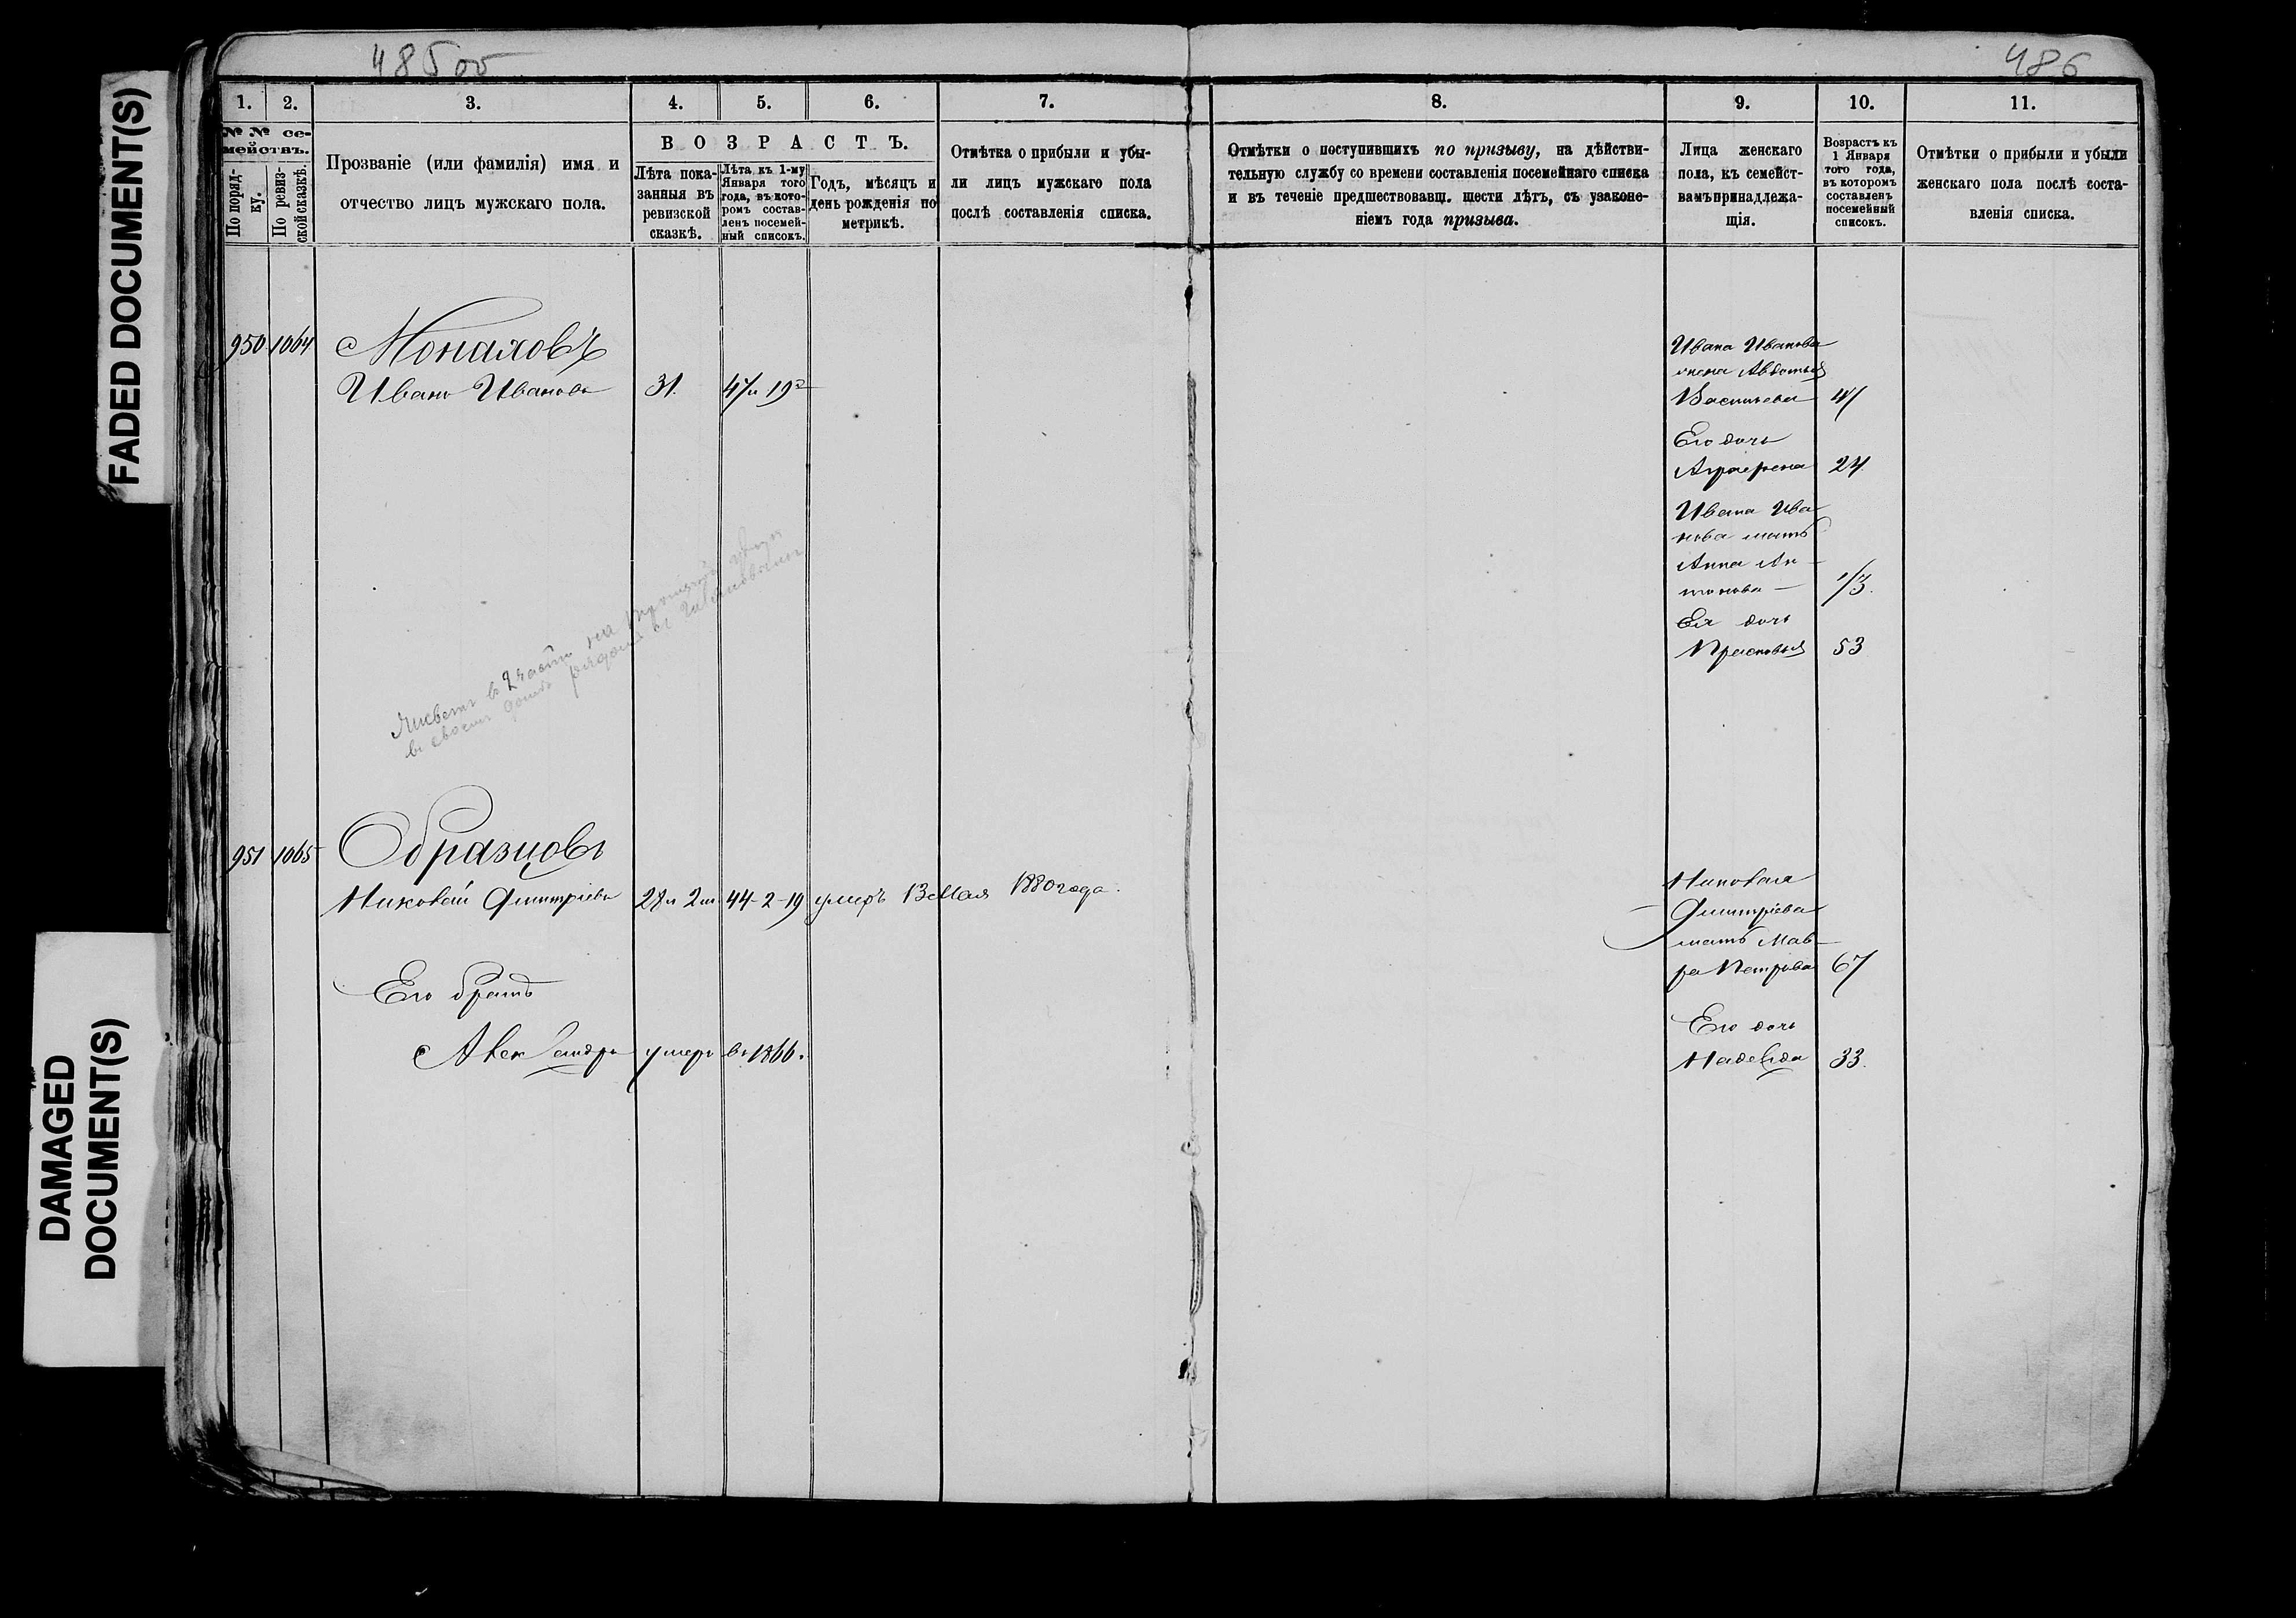 485об
486
FADED DOCUMENT(S)
DAMAGED
DOCUMENT(S)
1.
2.
3.
4.
5.
6.
7.
8.
9.
10.
11.
№ № се-
мействъ.
По поряд-
ку.
По ревиз-
ской сказкѣ.
Прозваніе (или фамилія) имя и
отчество лицъ мужскаго пола.
ВОЗРАСТЪ.
Лѣта пока-
занныя въ
ревизской
сказкѣ.
Лѣта къ 1-му
Января того
года, въ кото-
ромъ состав-
ленъ посемей-
ный списокъ.
Годъ, мѣсяцъ и
день рожденія по
метрикѣ.
Отмѣтка о прибыли и убы-
ли лицъ мужскаго пола
послѣ составленія списка.
Отмѣтки о поступившихъ по призыву, на дѣйстви-
тельную службу со времени составленія посемейнаго списка
и въ теченіе предшествовавш. шести лѣтъ, съ узаконе-
ніемъ года призыва.
Лица женскаго
пола, къ семейст-
вамъ принадлежа-
щія.
Возрастъ къ
1 Января
того года,
въ которомъ
составленъ
посемейный
списокъ.
Отмѣтки о прибыли и убыли
женскаго пола послѣ соста-
вленія списка.
950 1064
Иванъ Ивановъ 31. 47
Ивана Иванова
жена Авдотья
Васильева 47
Его дочь
Аграфена 24
Ивана Ива
нова мать
Анна Ан-
тонова 73.
Ея дочь
Прасковья 53
951 1065 Образцовъ
Николай Дмитріевъ 28 2 44-2-19 умеръ 13 Мая 1880 года.
Его братъ
Александръ умеръ въ 1866.
Николая
Дмитріева
мать Мав-
ра Петрова 67
Его дочь
Надежда 33.